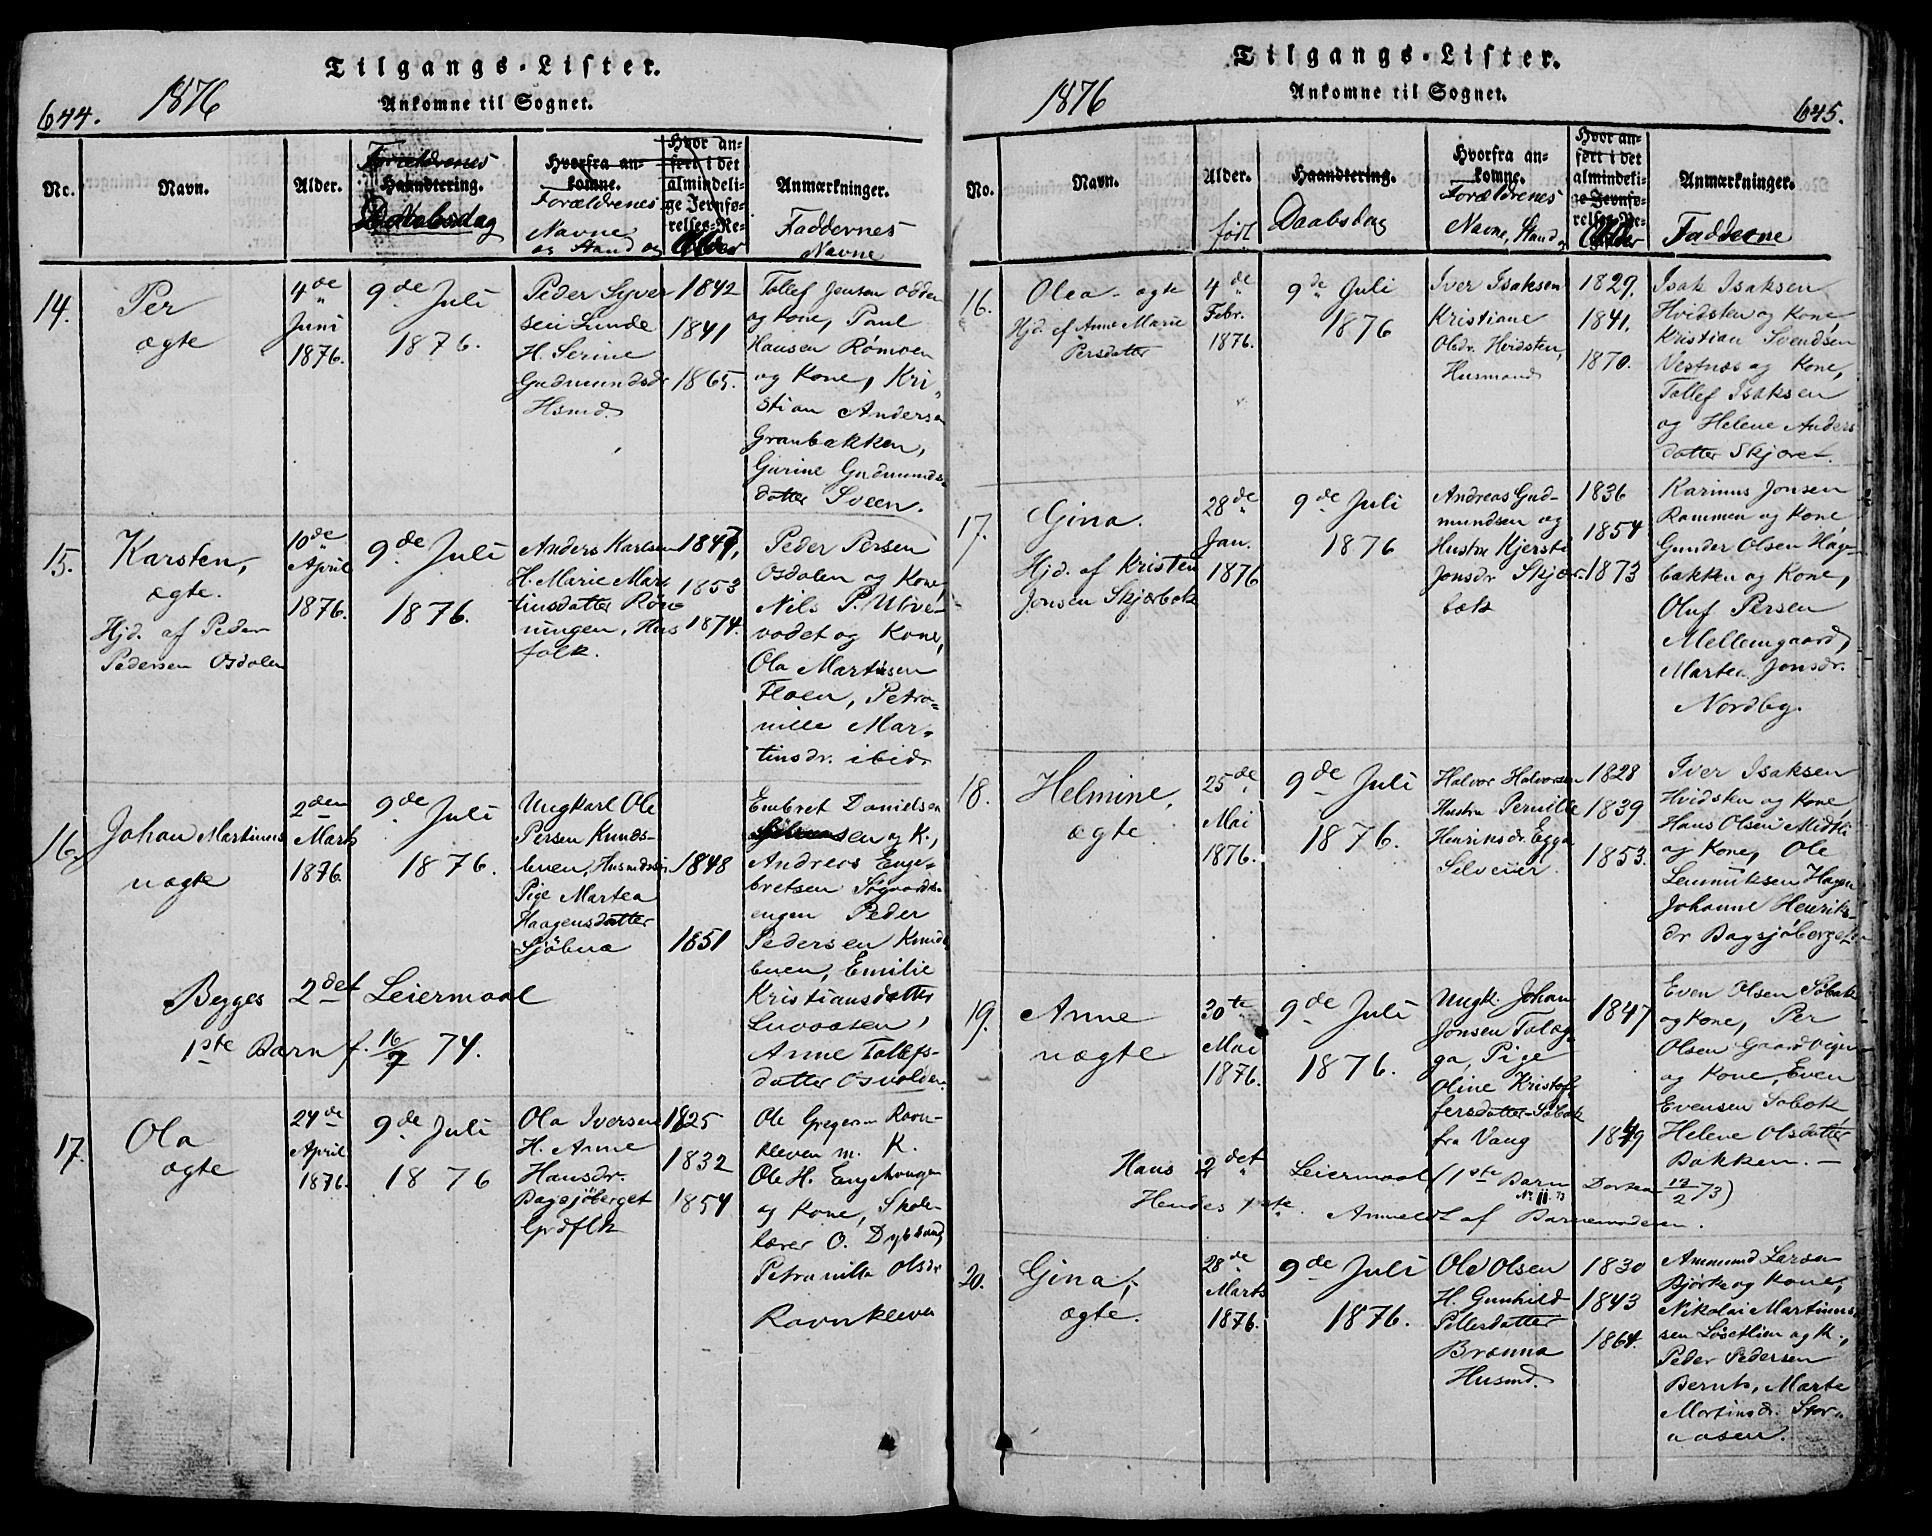 Tilgangs-Lister.
644. 1876
Ankomne til Sognet.
No.
Navn.
Alder.
Forældrenes
Haandtering.
Daabsdag
Hvorfra an-
komne.
Forældrenes
Navne
og Stand og
Hvor an-
ført i det
almindeli-
ge Jevnfø-
relses-Re-
Alder
Anmærkninger.
Faddernes
Navne
14.
Per
ægte
4de
Juni
1876.
9de Juli
1876.
Peder Syver
sen Lunde
H. Serine
Gudmundsdr
Hsmd.
1842
1841
1865.
Tollef Jensen Odden
og Kone, Paul
Hansen Rømoen
og Kone, Kri-
stian Andersen
Granbakken,
Gurine Gudmunds-
datter Sveen.
15.
Karsten,
ægte.
Hjd. af Peder
Pedersen Osdalen
10de
April
1876.
9de Juli
1876.
Anders Karlsen
H. Marie Mar
tinsdatter Røn-
ningen, Hus
folk.
1847,
1853
1874.
Peder Persen
Osdalen og Kone,
Nils P. Utve-
vodet og Kone,
Ola Martinsen
Floen, Petro-
nille Mar-
tinsdr. ibid.
16.
Johan Martinus
uægte
2den
Marts
1876.
9de Juli
1876.
Ungkarl Ole
Persen Kunds-
buen, Husmdssøn
Pige Martea
Haagensdatter
Sjøbua
1848
1851
Embret Danielsen
og K.,
Andreas Enge-
bretsen Sygaards-
engen Peder
Pedersen Knuds
buen, Emilie
Kristiansdatter
Luvaasen,
Anne Tollefs-
datter Osvolden.
Begges 2det Leiermaal
1ste Barn f. 16/7 74.
17.
Ola
ægte
24de
April
1876.
9de Juli
1876
Ola Iversen
H. Anne
Hansdr.
Bagsjøberget
Grdflk
1825
1832
1854
Ole Gregersen Ravn-
kleven m. K.
Ole H. Engehaugen
og Kone, Skole-
lærer O. Dybdahl
Petronille Olsdr
Ravnkleven
Tilgangs-Lister.
1876 645.
Ankomne til Sognet.
No.
Navn.
Alder.
født
Haandtering.
Daabsdag
Hvorfra an-
komne.
Forældrenes
Navne, Stand og
Hvor an-
ført i det
almindeli-
ge Jevnfø-
relses-Re-
Alder
Anmærkninger.
Fadderne
16.
Olea - ægte
Hjd. af Anne Marie
Persdatter
4de
Febr.
1876.
9de Juli
1876
Iver Isaksen
Kristiane
Olsdr. Hvidsten,
Husmand
1829.
1841.
1870.
Isak Isaksen
Hvidsten og Kone,
Kristian Svendsen
Vestnæs og Kone,
Tollef Isaksen
og Helene Anders
datter Skjæret.
17.
Gina.
Hjd. af Kristen
Jonsen Skjærbæk
28de
Jan.
1876
9de Juli
1876
Andreas Gud-
mundsen og
Hustru Kjersti
Jonsdr. Skjær-
bæk
1836
1854
1873
Karinus Jonsen
Rammen og Kone
Gunder Olsen Hage-
bakken og Kone,
Oluf Persen
Mellemgaard,
Martea Jonsdr.
Nordby.
18.
Helmine,
ægte.
25de
Mai
1876.
9de Juli
1876.
Halvor Halvorsen
Hustru Pernille
Henriksdr. Egga
Selveier.
1828
1839
1853.
Iver Isaksen
Hvidsten og Kone,
Hans Olsen Midtli
og Kone, Ole
Hagen
Johanne Henriks-
dr Bagsjøberget
19.
Anne
uægte
30te
Mai
1876.
9de Juli
1876.
Ungk. Johan
Jonsen Tolag-
ga, Pige
Oline Kristof
fersdatter Søbak
fra Vang
1847
1849
Even Olsen Søbak
og Kone, Per
Olsen Gaardvigen
og Kone, Even
Evensen Søbak,
Helene Olsdatter
Bakken. -
Hans 2det Leiermaal (1ste Barn Dorthea 12/2 73)
No 11. 73
Hendes 1ste. Anmeldt af Barnemoderen.
20.
Gina,
ægte.
28de
Marts
1876.
9de Juli
1876.
Ole Olsen
H. Gunhild
Pellersdatter
Brænna
Husmd.
1830
1843
1864.
Ammund Larsen
Bjørke og Kone,
Nikolai Martinus-
sen Løsetlien og K.,
Peder Pedersen
Bernts, Marte
Martinsdr. Stor-
aasen.